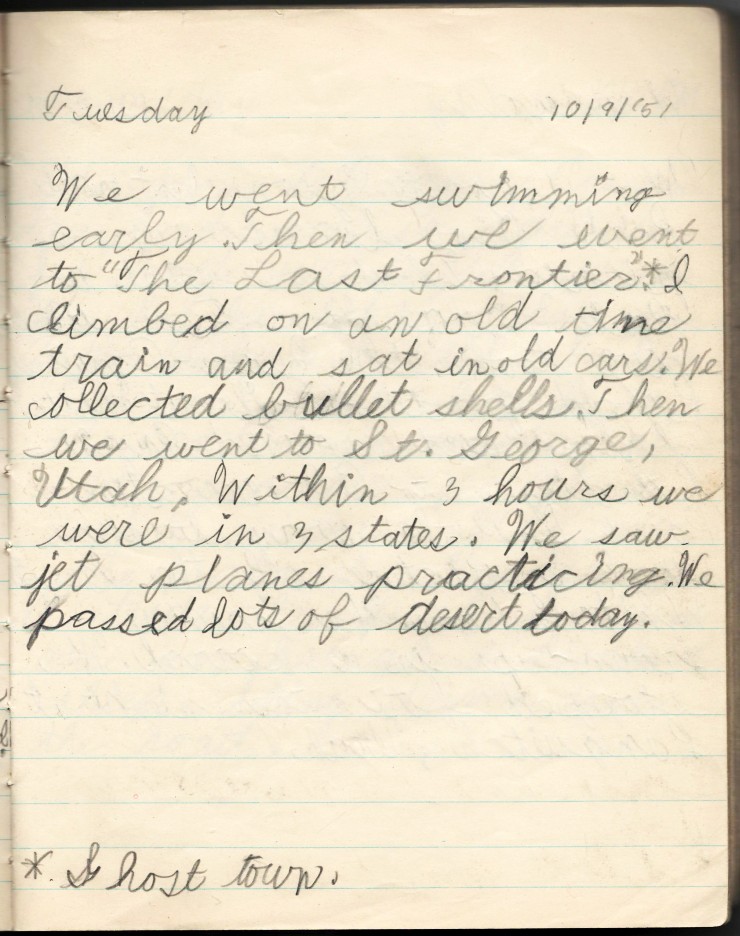 Tuesday 10/9/51
We went swimming
early. Then we went
to "The Last Frontier".* I
climbed on an old time
train and sat in old cars. We
collected bullet shells. Then
we went to St. George,
Utah. Within 3 hours we
were in 3 states. We saw
jet planes practicing. We
passed lots of desert today.
* Ghost town.